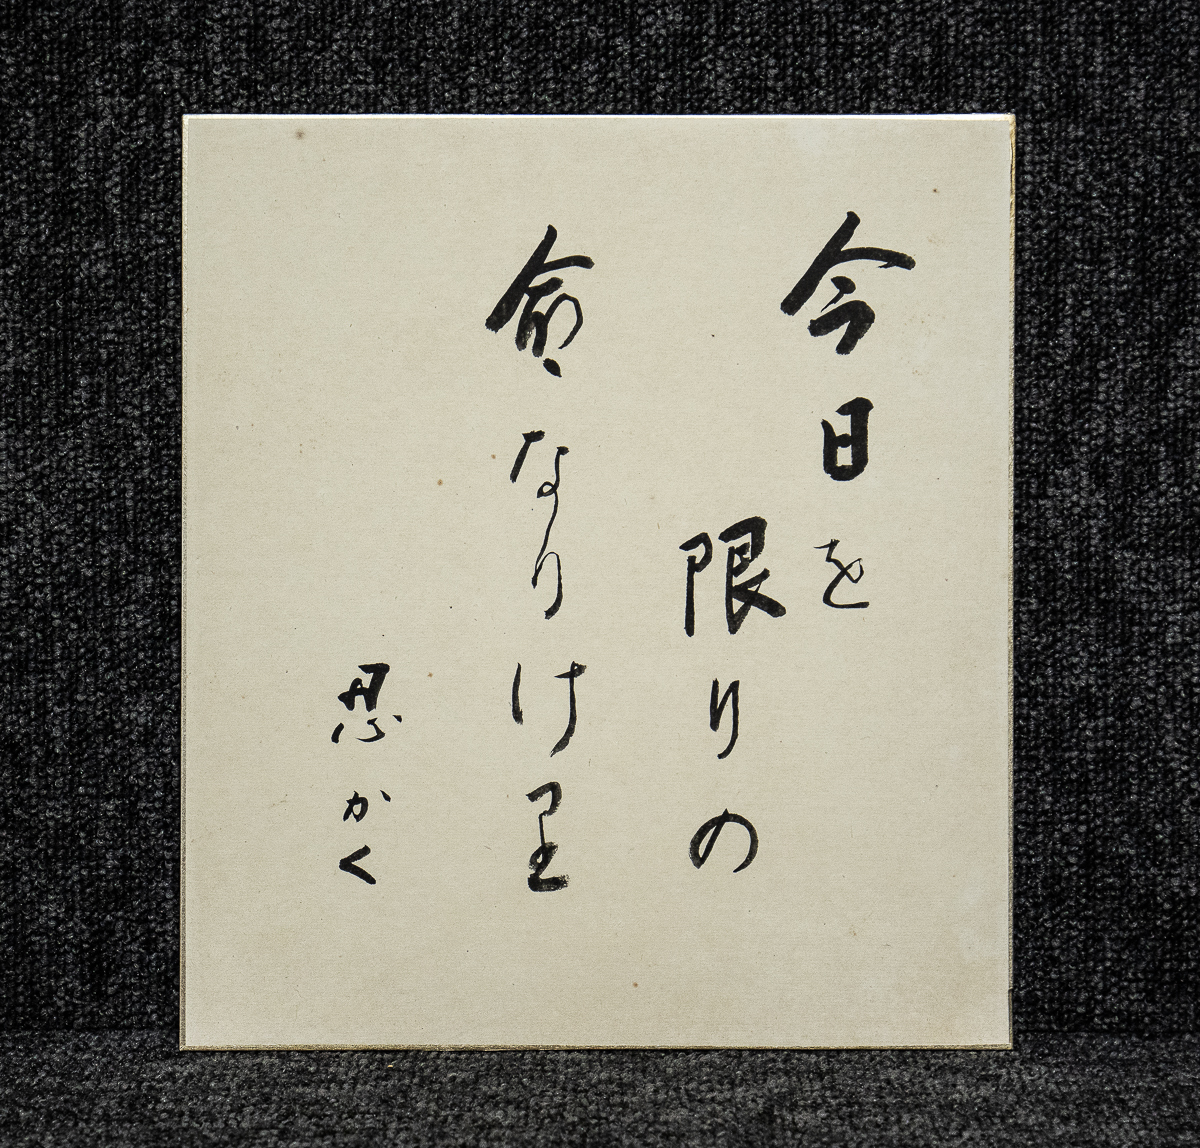 今日を
限りの
命なりけ里
忍かく